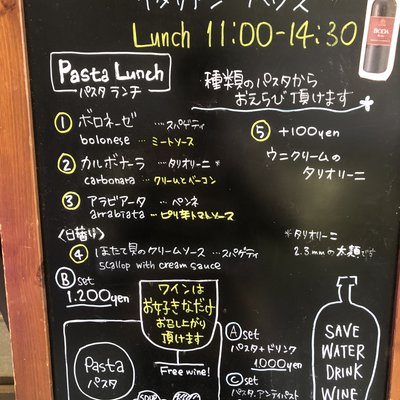 Lunch 11:00-14:30
BODA
Pasta Lunch
パスタ ランチ
種類のパスタから
おえらび頂けます
① ボロネーゼ …スパゲティ
bolonese … ミートソース
② カルボナーラ …タリオリーニ*
carbonara … クリームとベーコン
③ アラビアータ …ペンネ
arrabiata … ピリ辛トマトソース
〈日替り〉
④ ほたて貝のクリームソース …スパゲティ
scallop with cream sauce
⑤ +100yen
ウニクリームの
タリオリーニ
*タリオリーニ
2.3mmの太麺です
Ⓑ set
1.200yen
ワインは
お好きなだけ
お召し上がり
頂けます
Free wine!
Pasta
パスタ
Ⓐ set
パスタ+ドリンク
1000yen
Ⓒ set
パスタ.アンティパスト
SAVE
WATER
DRINK
WINE